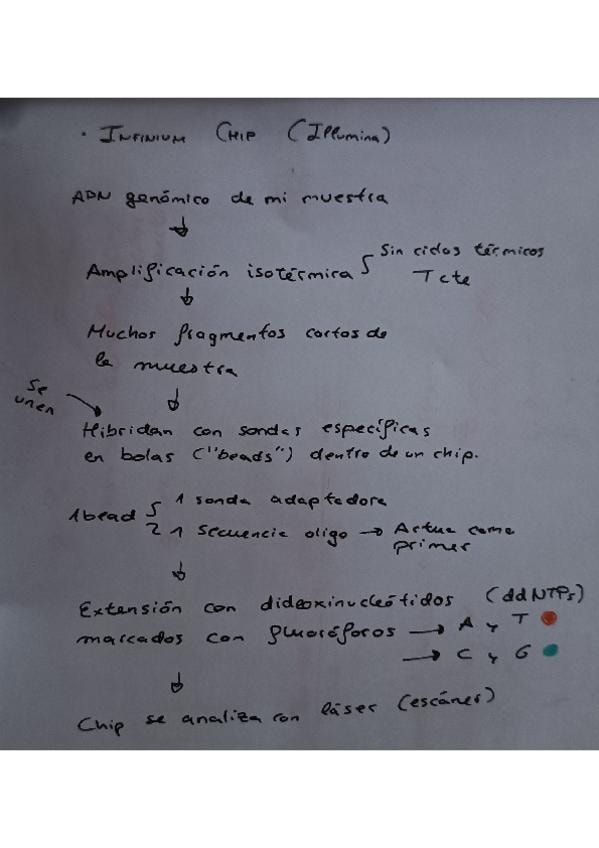 · INFINIUM CHIP (Illumina)
ADN genómico de mi muestra
↓
Amplificación isotérmica { Sin ciclos térmicos
T cte
↓
Muchos fragmentos cortos de
la muestra
↓
Se
unen →
Hibridan con sondas específicas
en bolas ("beads") dentro de un chip.
1 bead { 1 sonda adaptadora
1 secuencia oligo → Actua como
primer
↓
Extensión con didexinucleótidos (ddNTPs)
marcados con fluoróforos → A y T
→ C y G
↓
Chip se analiza con láser (escáner)